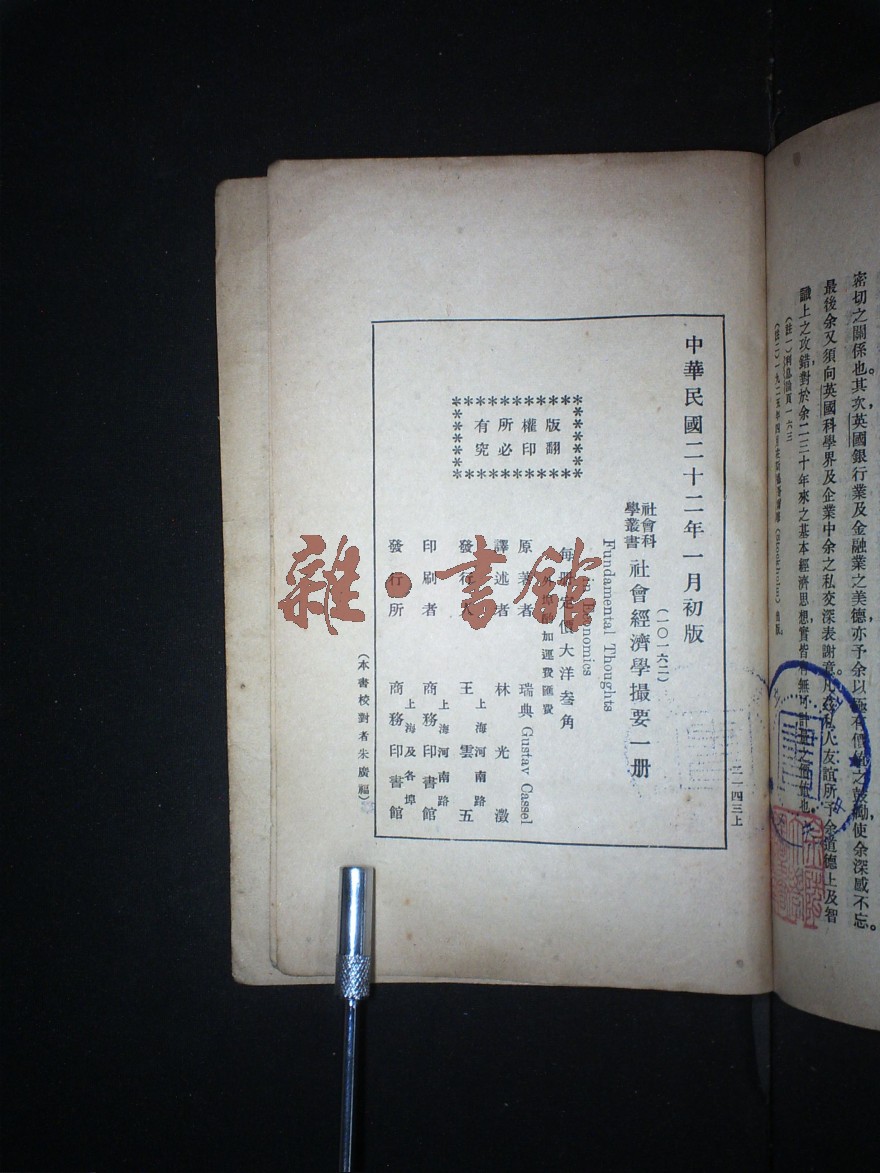 密切之關係也。其次，英國銀行業及金融業之美德亦予余以極有價
之鼓勵，使余深感不忘。
最後余又須向英國科學界及企業中余之私交深表謝意。凡
私人友誼所予余道德上及智
識上之攻錯，對於余二三十年來之基本經濟思想實皆有無
也。
(註一)利息論頁一六三
(註二)一九二五年四月在
(Stockholm)出版。
中華民國二十二年一月初版
二一四三上
(一〇一六二)
社會科學叢書
社會經濟學撮要一册
Fundamental Thoughts
in Economics
每册定價大洋叁角
外埠酌加運費匯費
原著者 瑞典 Gustav Cassel
譯述者 林光澂
發行人 上海河南路 王雲五
印刷者 上海河南路 商務印書館
發行所 上海及各埠 商務印書館
(本書校對者朱廣福)
版權所有
翻印必究
雜·書館